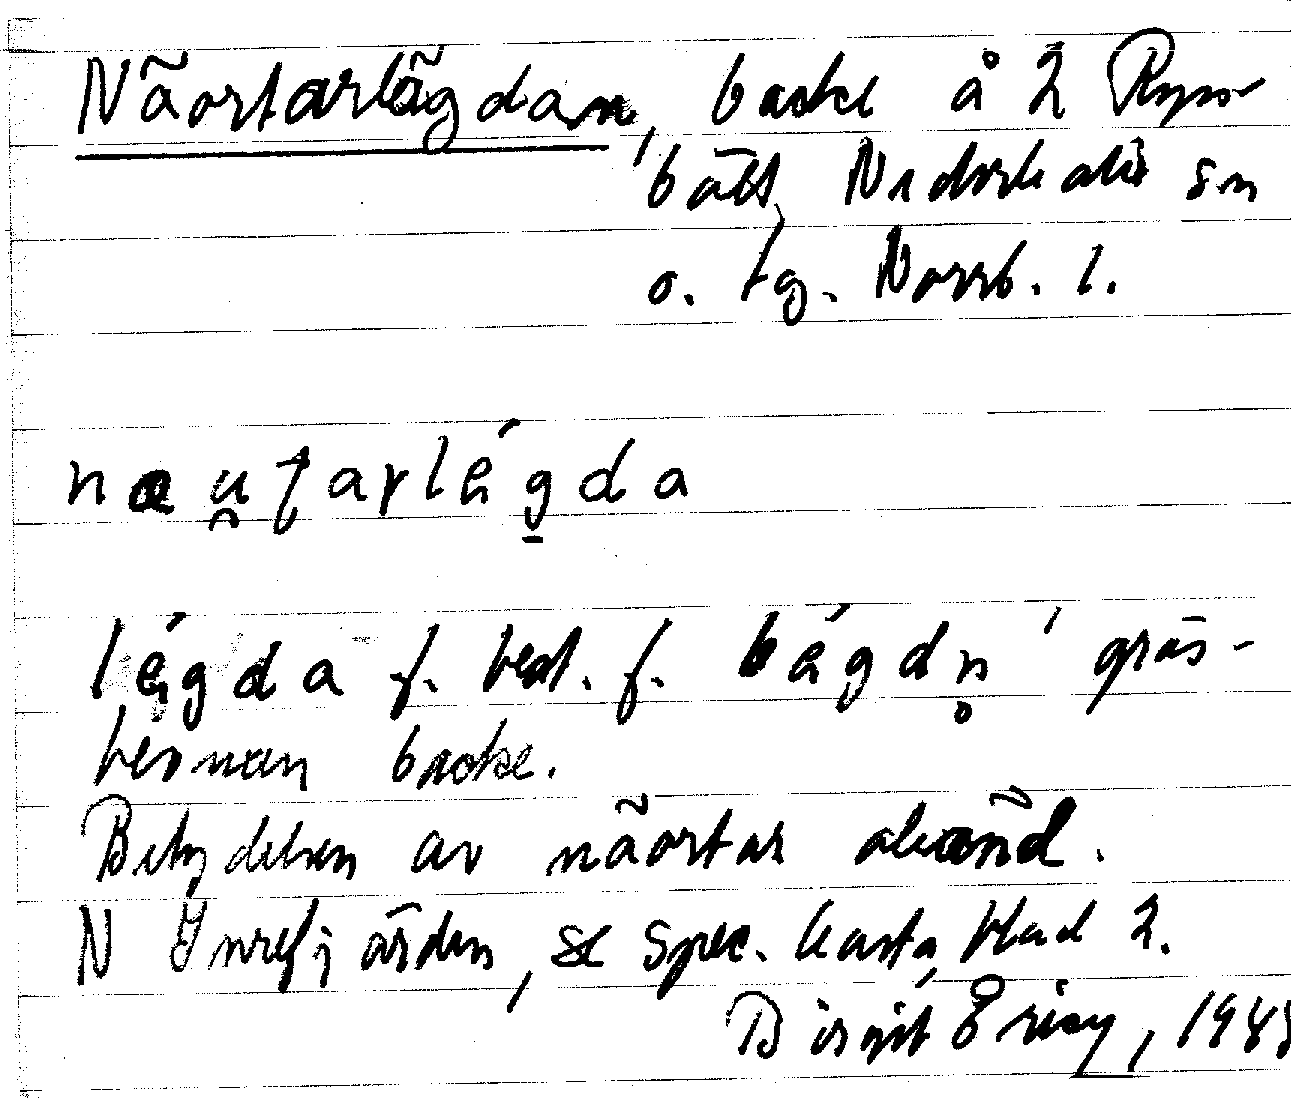 Näortarlägdan, backe å 2 Ryss-
bält, Nederkalix sn
o. tg. Norrb. l.
næu̯ʈarlégda
légda f. best. f. légdn̥ 'gräs-
bevuxen backe.
Betydelsen av näortar okänd.
N Inrefjärden, se spec. karta, blad 2.
Birgit Eriby, 194